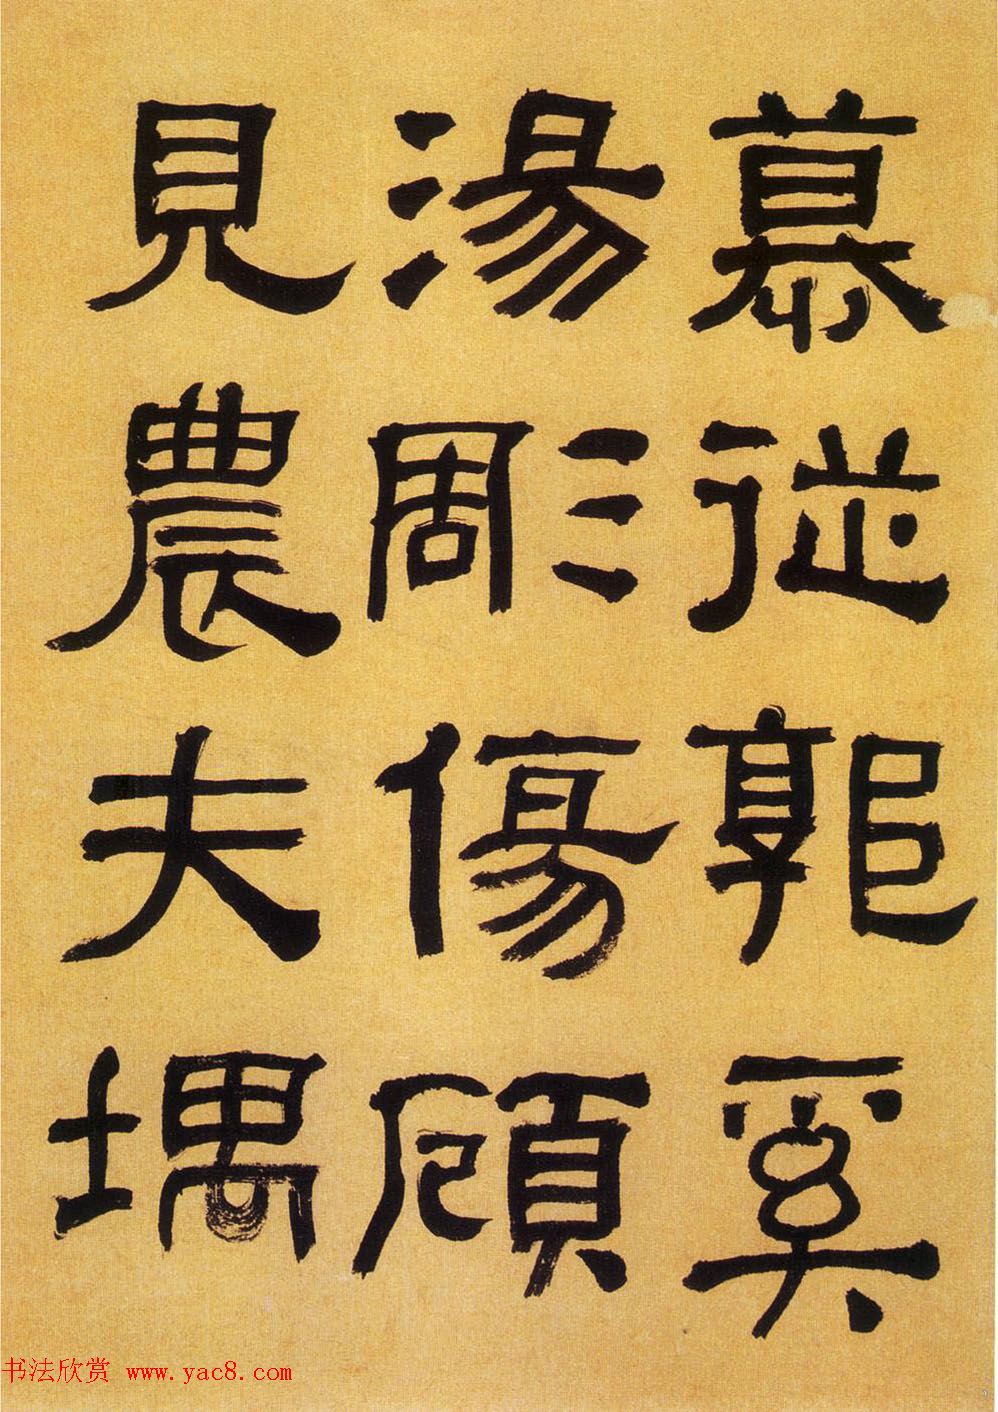 慕從郭奚
湯彫傷頋
見農夫堣
书法欣赏 www.yac8.com